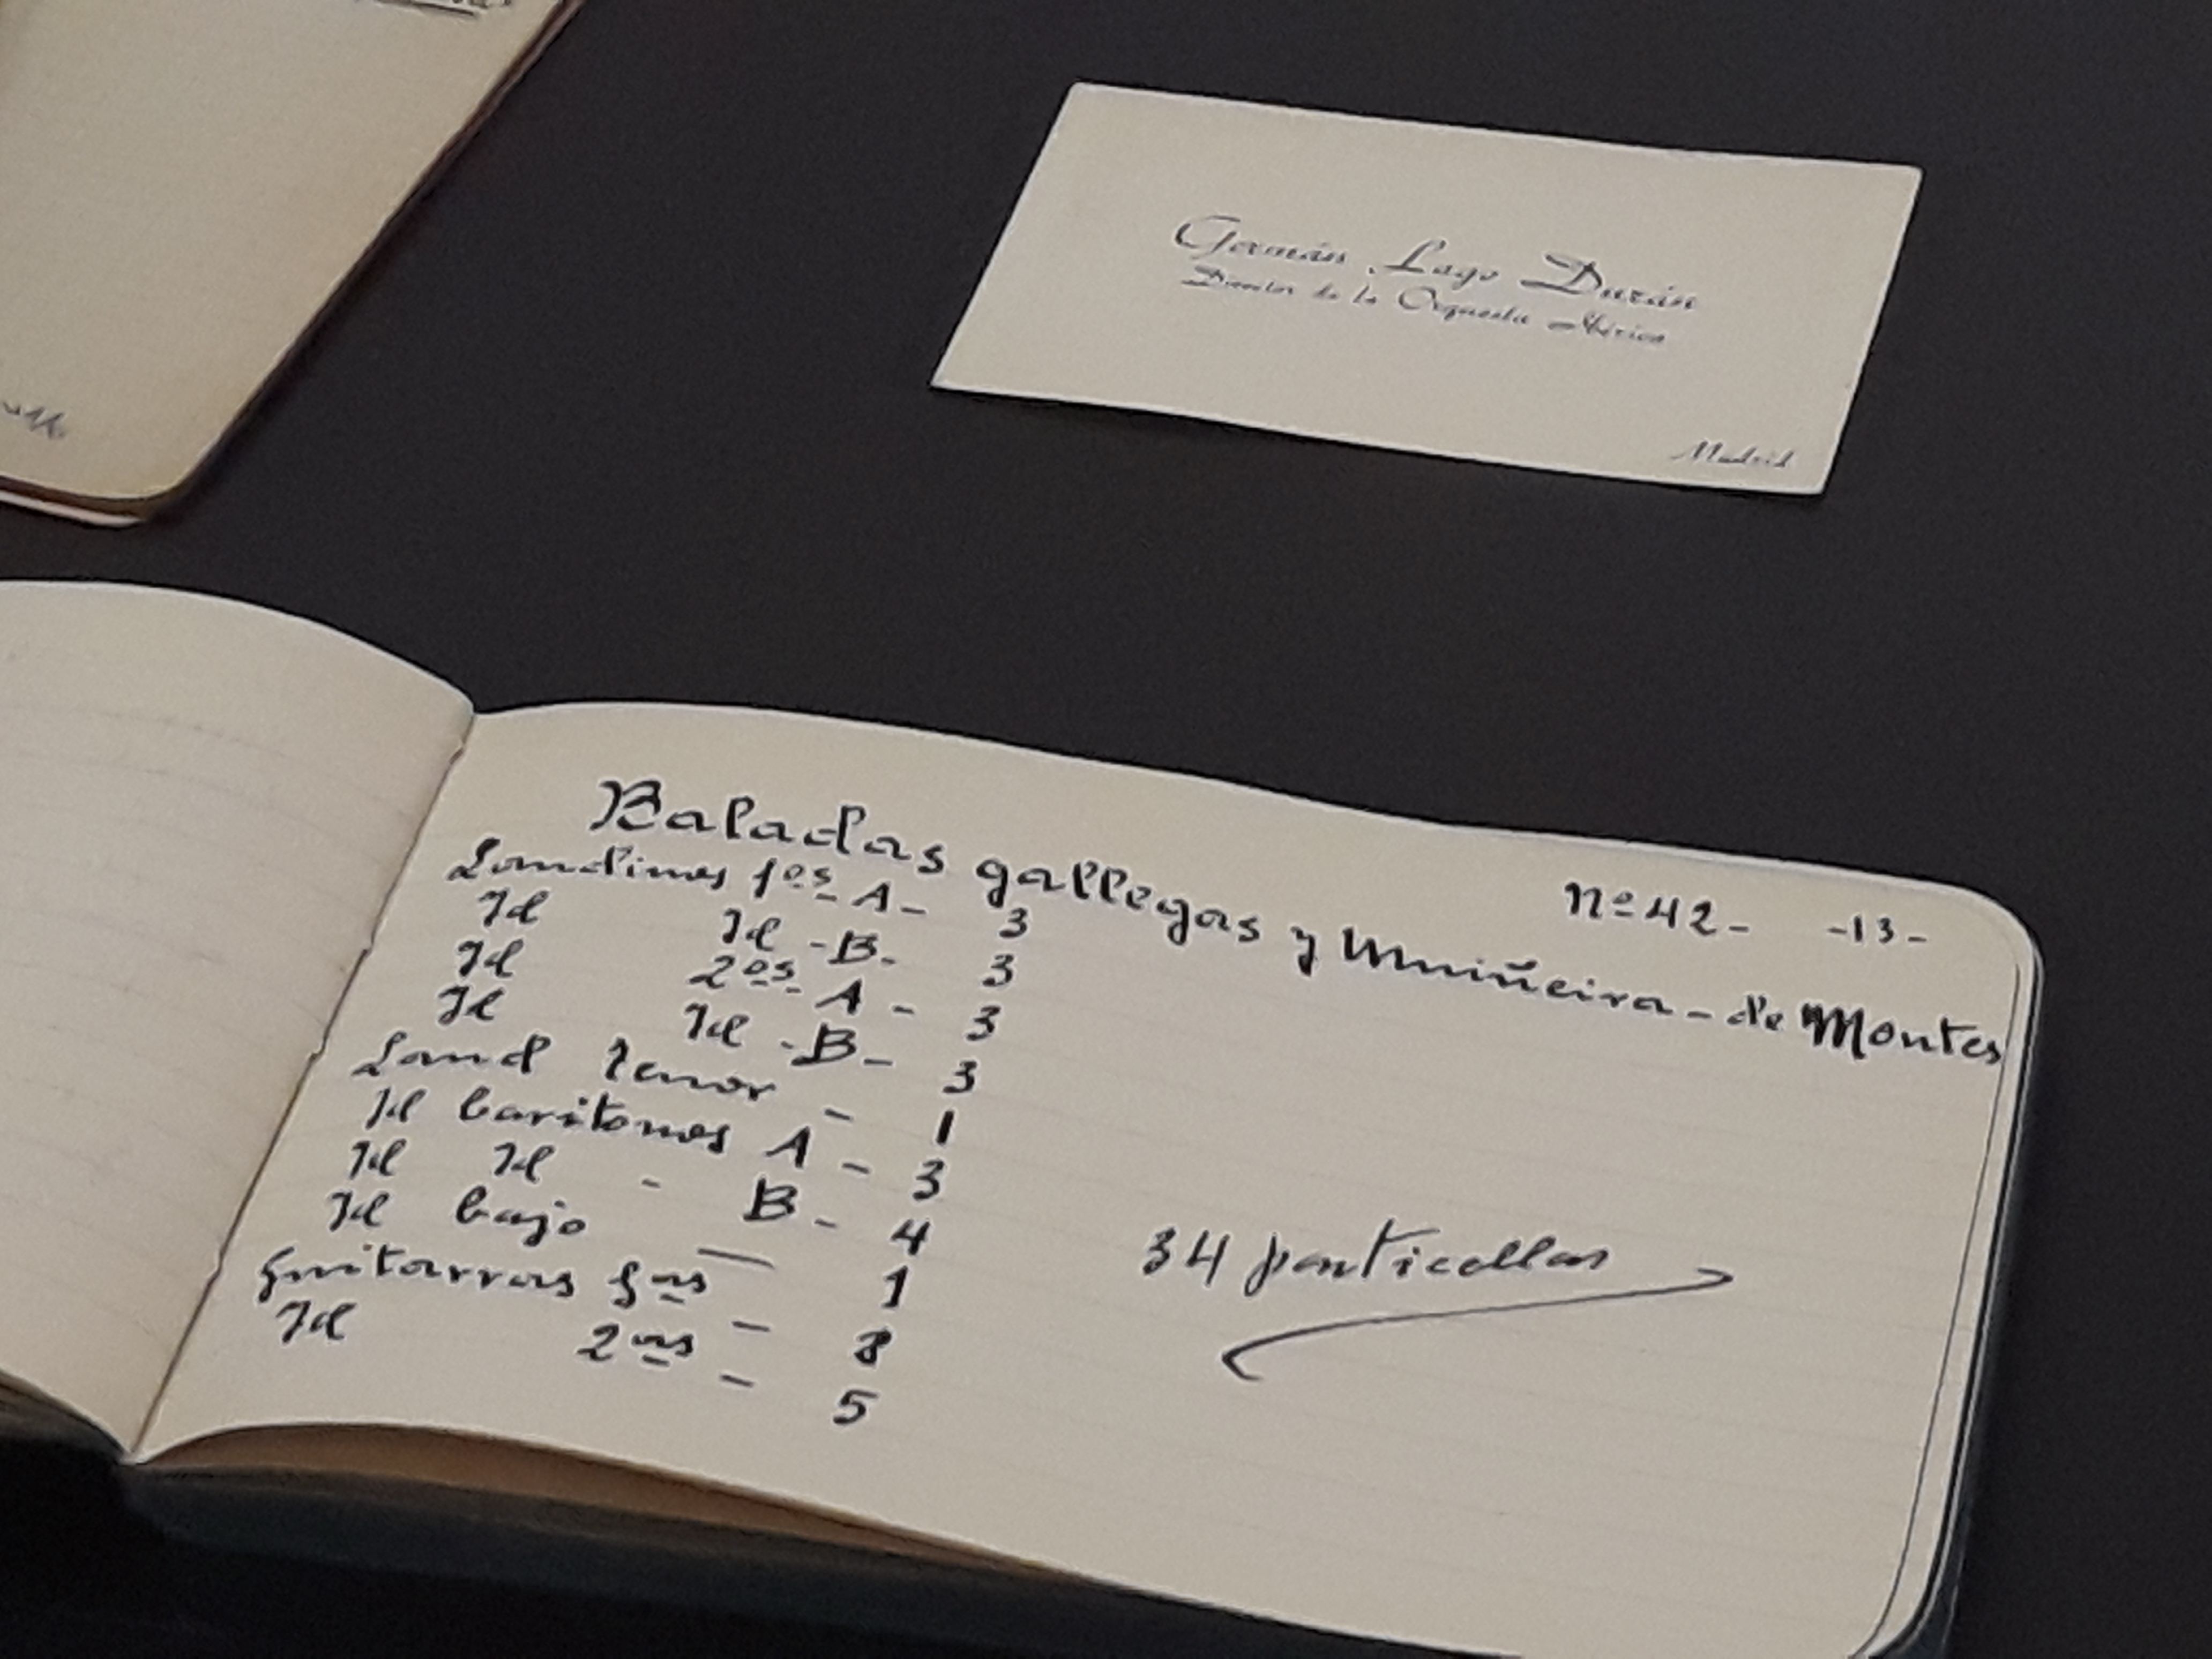 Germán Lago Durán
Director de la Orquesta Ibérica
Madrid
Nº 42 - -13-
Baladas gallegas y Muiñeira - de Montes
Laudines 1os A - 3
Id Id - B - 3
Id 2os - A - 3
Id Id - B - 3
Laud tenor - 1
Id baritonos A - 3
Id Id - B - 4
Id bajo — 1
Guitarras 1as - 8
Id 2as - 5
34 particellas